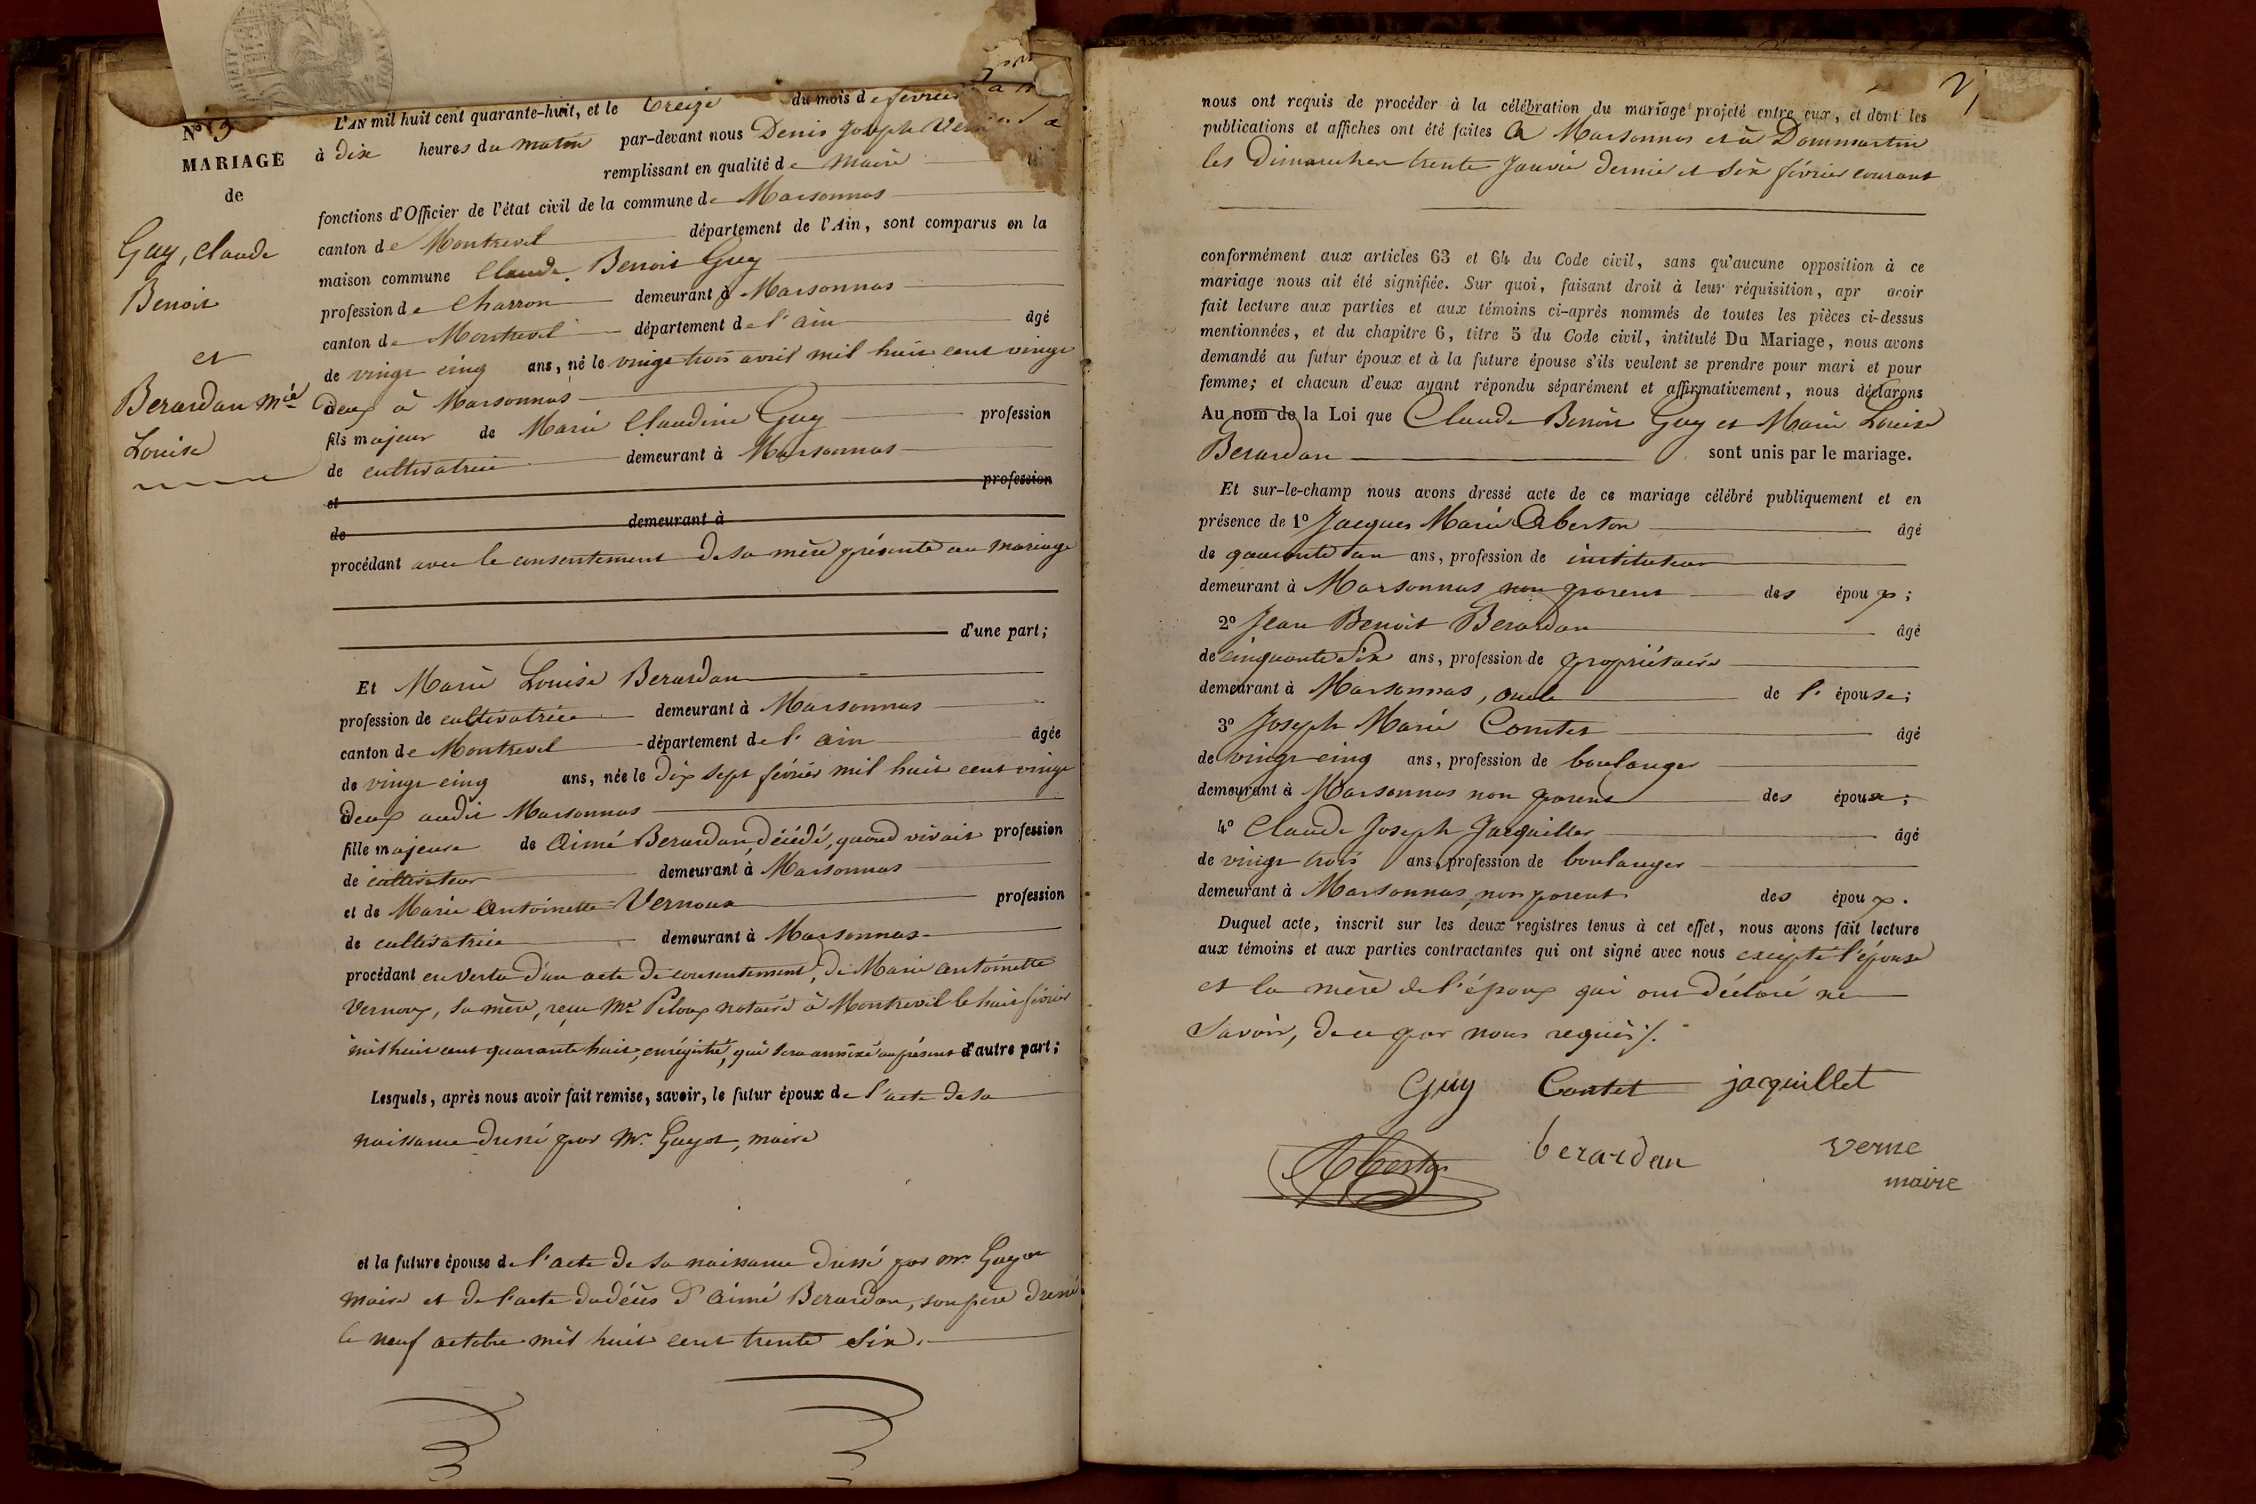 N° 9
MARIAGE
de
Guy, Claude
Benoit
et
Berardan Mie
Louise
L'AN mil huit cent quarante-huit, et le treize du mois de fevrier à
à dix heures du matin par-devant nous Denis Joseph Verne
remplissant en qualité de Maire
fonctions d'Officier de l'état civil de la commune de Marsonnas
canton de Montrevel département de l'Ain, sont comparus en la
maison commune Claude Benoit Guy
profession de Charron demeurant à Marsonnas
canton de Montrevel département de l'ain âgé
de vingt cinq ans, né le vingt trois avril mil huit cent vingt
deux à Marsonnas
fils majeur de Marie Claudine Guy profession
de cultivatrice demeurant à Marsonnas
et profession
de demeurant à
procédant avec le consentement de sa mère présente au mariage
d'une part;
Et Marie Louise Berardan
profession de cultivatrice demeurant à Marsonnas
canton de Montrevel département de l'ain âgée
de vingt cinq ans, née le dix sept février mil huit cent vingt
deux audit Marsonnas
fille majeure de Aimé Berardan, décédé, quand vivait profession
de cultivateur demeurant à Marsonnas
et de Marie Antoinette Vernoux profession
de cultivatrice demeurant à Marsonnas
procédant en vertu d'un acte de consentement, de Marie antoinette
Vernoux, sa mère, reçu Me Piloux notaire à Montrevel le huit février
mil huit cent quarante huit, enrégistré, qui sera annéxé au présent d'autre part;
Lesquels, après nous avoir fait remise, savoir, le futur époux de l'acte de sa
naissance dressé par Mr Guyot, maire
et la future épouse de l'acte de sa naissance dressé par Mr Guyot
Maire et de l'acte du décès d'Aimé Berardan, son père dressé
le neuf octobre mil huit cent trente six.
nous ont requis de procéder à la célébration du mariage projeté entre eux, et dont les
publications et affiches ont été faites A Marsonnas et à Dommartin
les Dimanches trente Janvier dernier et six février courant
conformément aux articles 63 et 64 du Code civil, sans qu'aucune opposition à ce
mariage nous ait été signifiée. Sur quoi, faisant droit à leur réquisition, apr avoir
fait lecture aux parties et aux témoins ci-après nommés de toutes les pièces ci-dessus
mentionnées, et du chapitre 6, titre 5 du Code civil, intitulé Du Mariage, nous avons
demandé au futur époux et à la future épouse s'ils veulent se prendre pour mari et pour
femme; et chacun d'eux ayant répondu séparément et affirmativement, nous déclarons
Au nom de la Loi que Claude Benoit Guy et Marie Louise
Berardan sont unis par le mariage.
Et sur-le-champ nous avons dressé acte de ce mariage célébré publiquement et en
présence de 1° Jacques Marie Aberton âgé
de quarante un ans, profession de instituteur
demeurant à Marsonnas non parent des époux;
2° Jean Benoit Berardan âgé
de cinquante six ans, profession de propriétaire
demeurant à Marsonnas, oncle de l'épouse;
3° Joseph Marie Comtet âgé
de vingt cinq ans, profession de boulanger
demeurant à Marsonnas non parent des époux;
4° Claude Joseph Jacquillet âgé
de vingt trois ans, profession de boulanger
demeurant à Marsonnas, non parent des époux.
Duquel acte, inscrit sur les deux registres tenus à cet effet, nous avons fait lecture
aux témoins et aux parties contractantes qui ont signé avec nous excepté l'épouse
et la mère de l'époux qui ont déclaré ne
savoir, de ce par nous requis /.
Guy Contet jacquillet
Aberton berardan Verne
maire